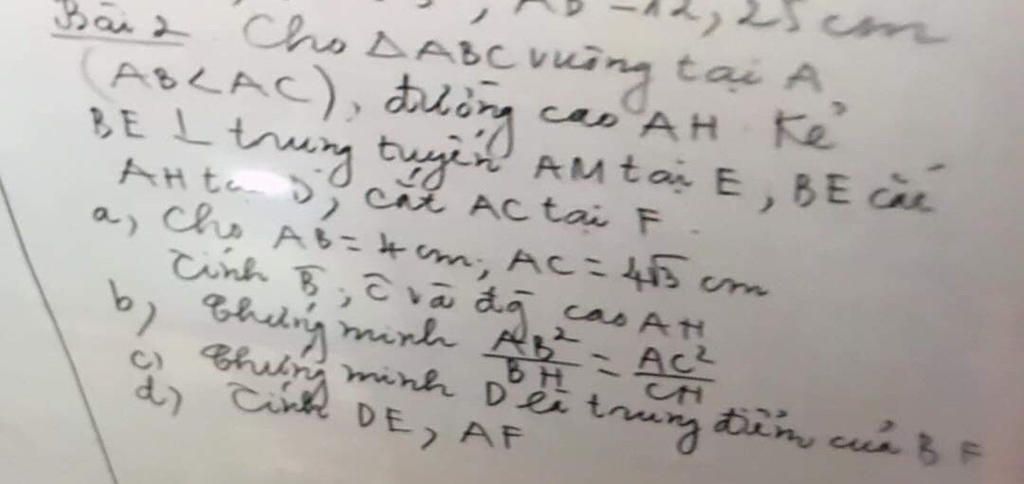 , AB = 12,25 cm
Bài 2 Cho △ABC vuông tại A
(AB < AC), đường cao AH Kẻ
BE ⊥ trung tuyến AM tại E, BE cắt
AH tại D, cắt AC tại F.
a, Cho AB = 4 cm; AC = 4√3 cm
Tính B̂, Ĉ và đg cao AH
b, Chứng minh AB²/BH = AC²/CH
c, Chứng minh D là trung điểm của BF
d, Tính DE, AF